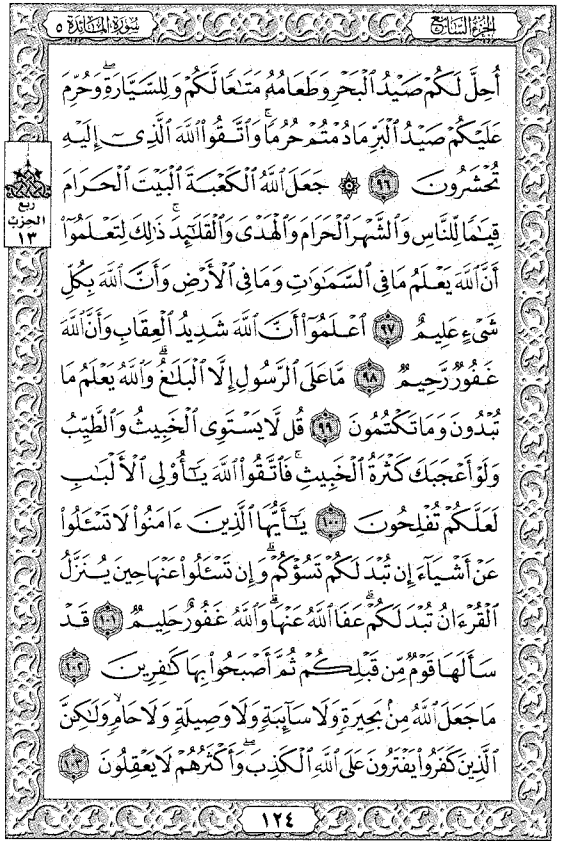 الجزء السابع
سورة المائدة ٥
أُحِلَّ لَكُمْ صَيْدُ ٱلْبَحْرِ وَطَعَامُهُۥ مَتَٰعًا لَّكُمْ وَلِلسَّيَّارَةِۖ وَحُرِّمَ
عَلَيْكُمْ صَيْدُ ٱلْبَرِّ مَا دُمْتُمْ حُرُمًاۗ وَٱتَّقُوا۟ ٱللَّهَ ٱلَّذِىٓ إِلَيْهِ
تُحْشَرُونَ ٩٦ ۞ جَعَلَ ٱللَّهُ ٱلْكَعْبَةَ ٱلْبَيْتَ ٱلْحَرَامَ
قِيَٰمًا لِّلنَّاسِ وَٱلشَّهْرَ ٱلْحَرَامَ وَٱلْهَدْىَ وَٱلْقَلَٰٓئِدَۚ ذَٰلِكَ لِتَعْلَمُوٓا۟
أَنَّ ٱللَّهَ يَعْلَمُ مَا فِى ٱلسَّمَٰوَٰتِ وَمَا فِى ٱلْأَرْضِ وَأَنَّ ٱللَّهَ بِكُلِّ
شَىْءٍ عَلِيمٌ ٩٧ ٱعْلَمُوٓا۟ أَنَّ ٱللَّهَ شَدِيدُ ٱلْعِقَابِ وَأَنَّ ٱللَّهَ
غَفُورٌ رَّحِيمٌ ٩٨ مَّا عَلَى ٱلرَّسُولِ إِلَّا ٱلْبَلَٰغُۗ وَٱللَّهُ يَعْلَمُ مَا
تُبْدُونَ وَمَا تَكْتُمُونَ ٩٩ قُل لَّا يَسْتَوِى ٱلْخَبِيثُ وَٱلطَّيِّبُ
وَلَوْ أَعْجَبَكَ كَثْرَةُ ٱلْخَبِيثِۚ فَٱتَّقُوا۟ ٱللَّهَ يَٰٓأُو۟لِى ٱلْأَلْبَٰبِ
لَعَلَّكُمْ تُفْلِحُونَ ١٠٠ يَٰٓأَيُّهَا ٱلَّذِينَ ءَامَنُوا۟ لَا تَسْـَٔلُوا۟
عَنْ أَشْيَآءَ إِن تُبْدَ لَكُمْ تَسُؤْكُمْ وَإِن تَسْـَٔلُوا۟ عَنْهَا حِينَ يُنَزَّلُ
ٱلْقُرْءَانُ تُبْدَ لَكُمْ عَفَا ٱللَّهُ عَنْهَاۗ وَٱللَّهُ غَفُورٌ حَلِيمٌ ١٠١ قَدْ
سَأَلَهَا قَوْمٌ مِّن قَبْلِكُمْ ثُمَّ أَصْبَحُوا۟ بِهَا كَٰفِرِينَ ١٠٢
مَا جَعَلَ ٱللَّهُ مِنۢ بَحِيرَةٍ وَلَا سَآئِبَةٍ وَلَا وَصِيلَةٍ وَلَا حَامٍۙ وَلَٰكِنَّ
ٱلَّذِينَ كَفَرُوا۟ يَفْتَرُونَ عَلَى ٱللَّهِ ٱلْكَذِبَۖ وَأَكْثَرُهُمْ لَا يَعْقِلُونَ ١٠٣
ربع
الحزب
١٣
١٢٤